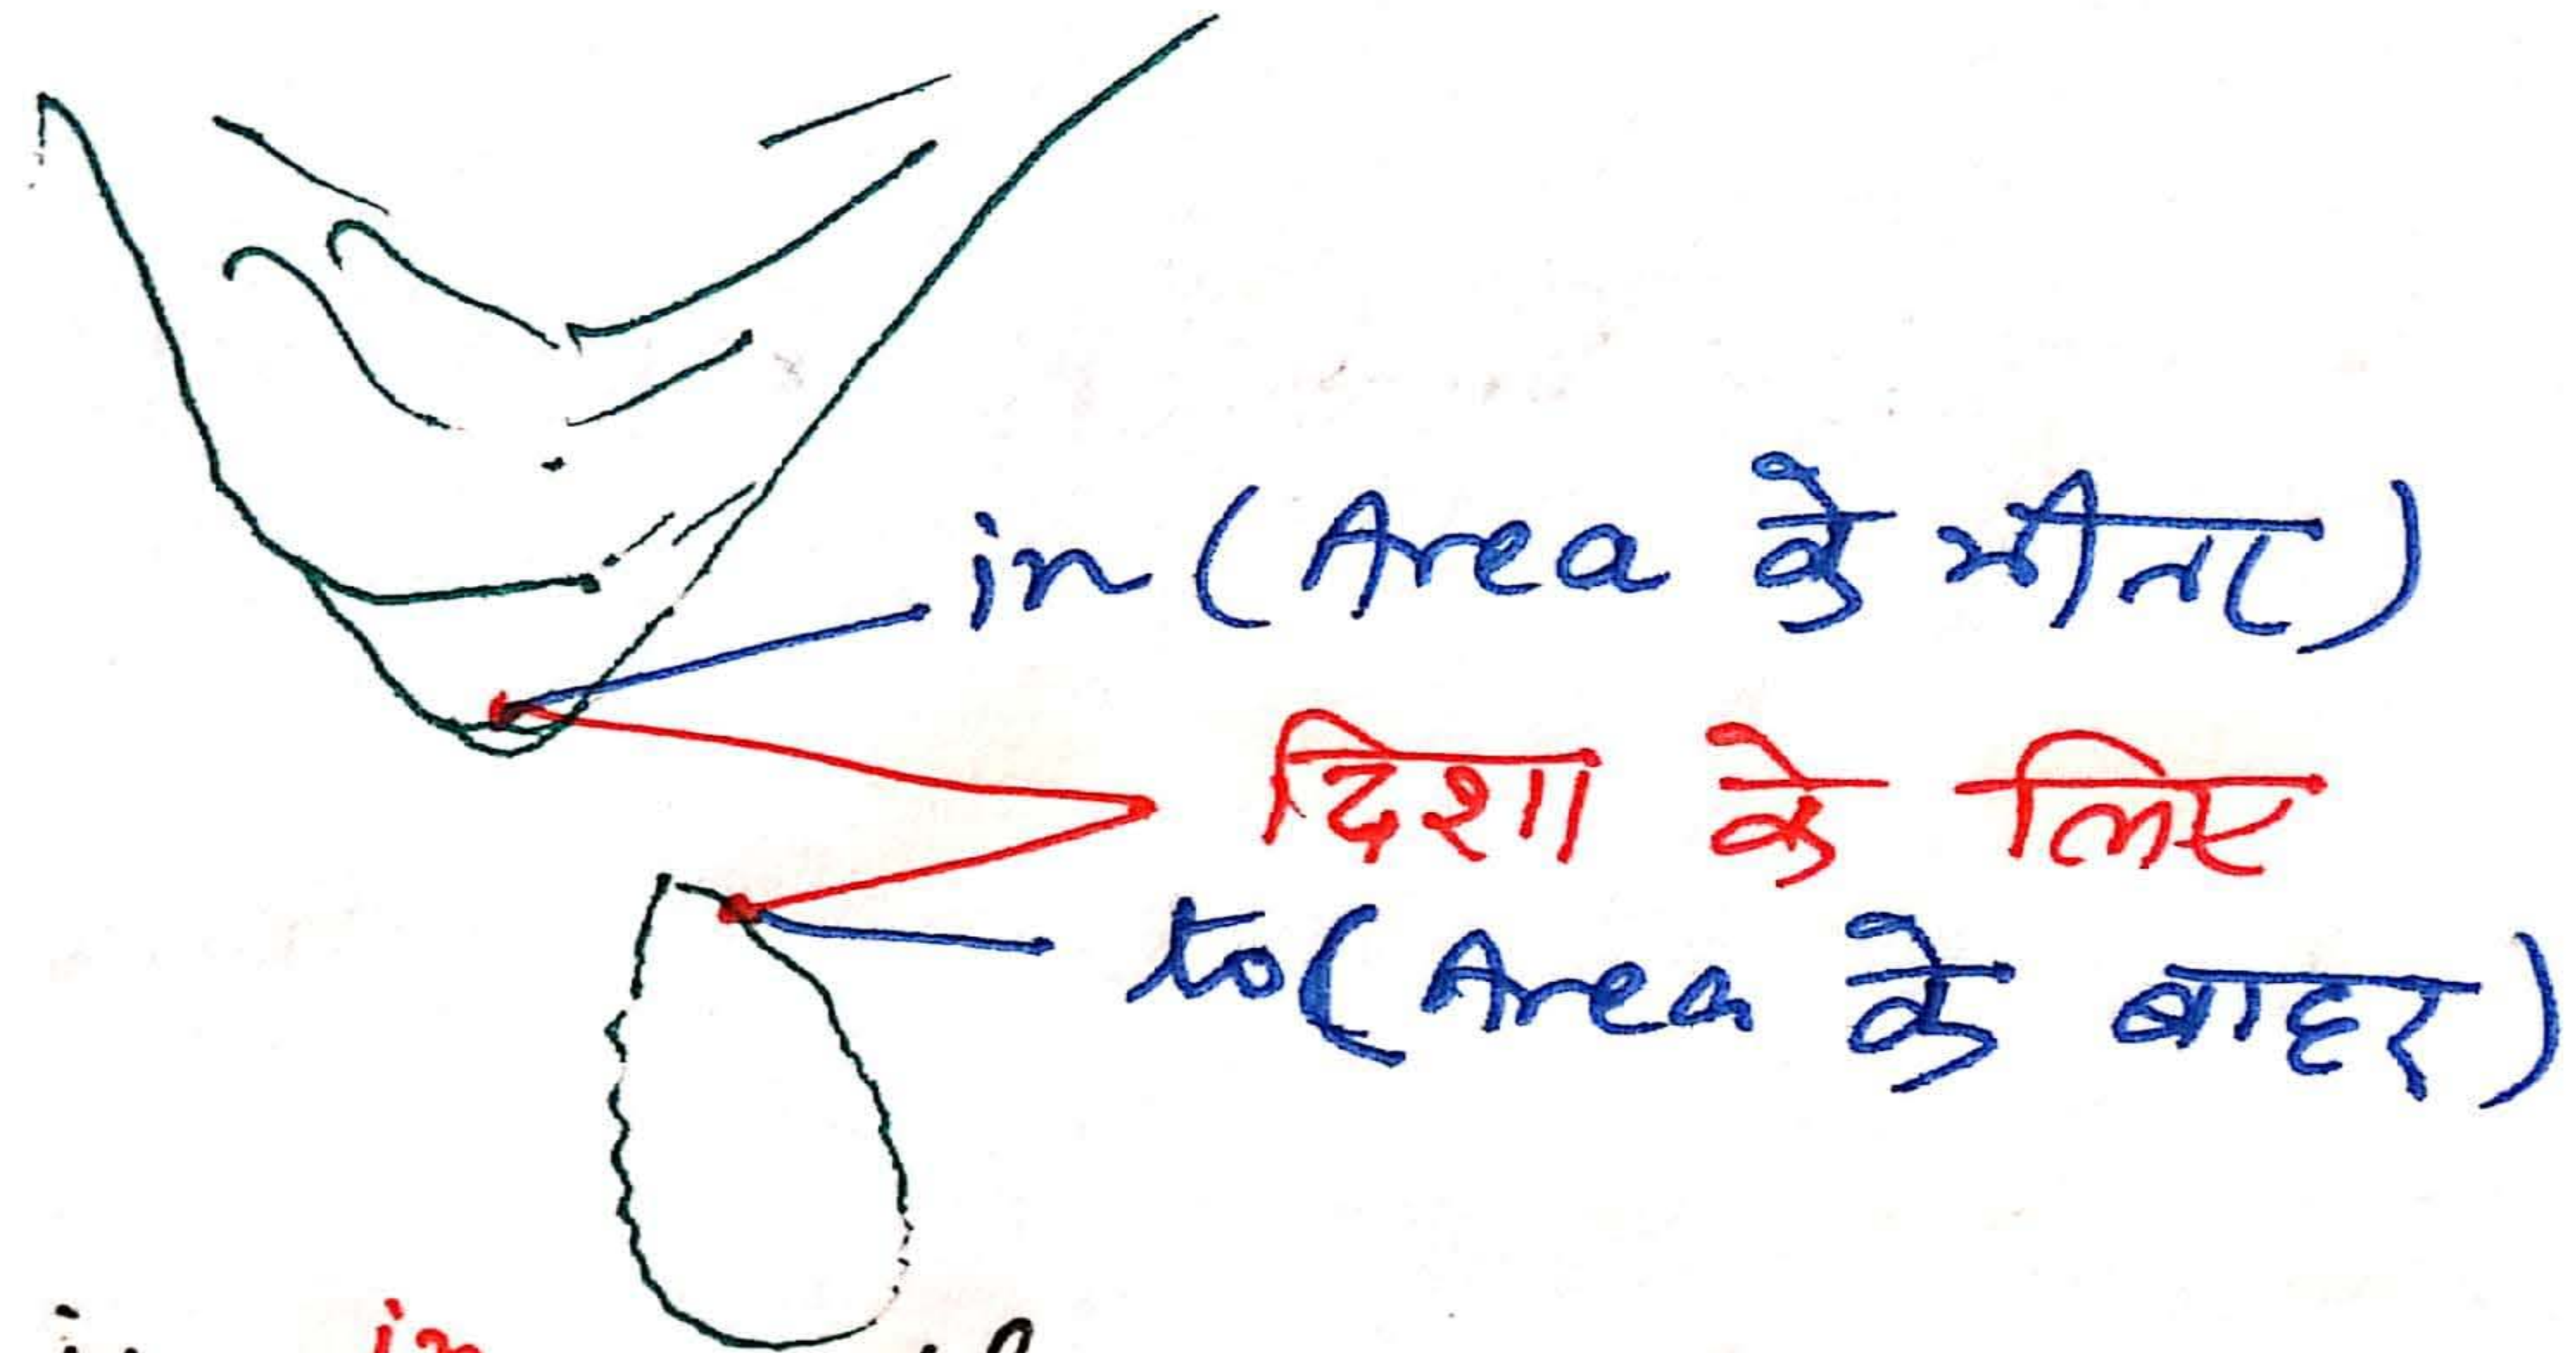 in (Area के भीतर)
दिशा के लिए
to (Area के बाहर)
in